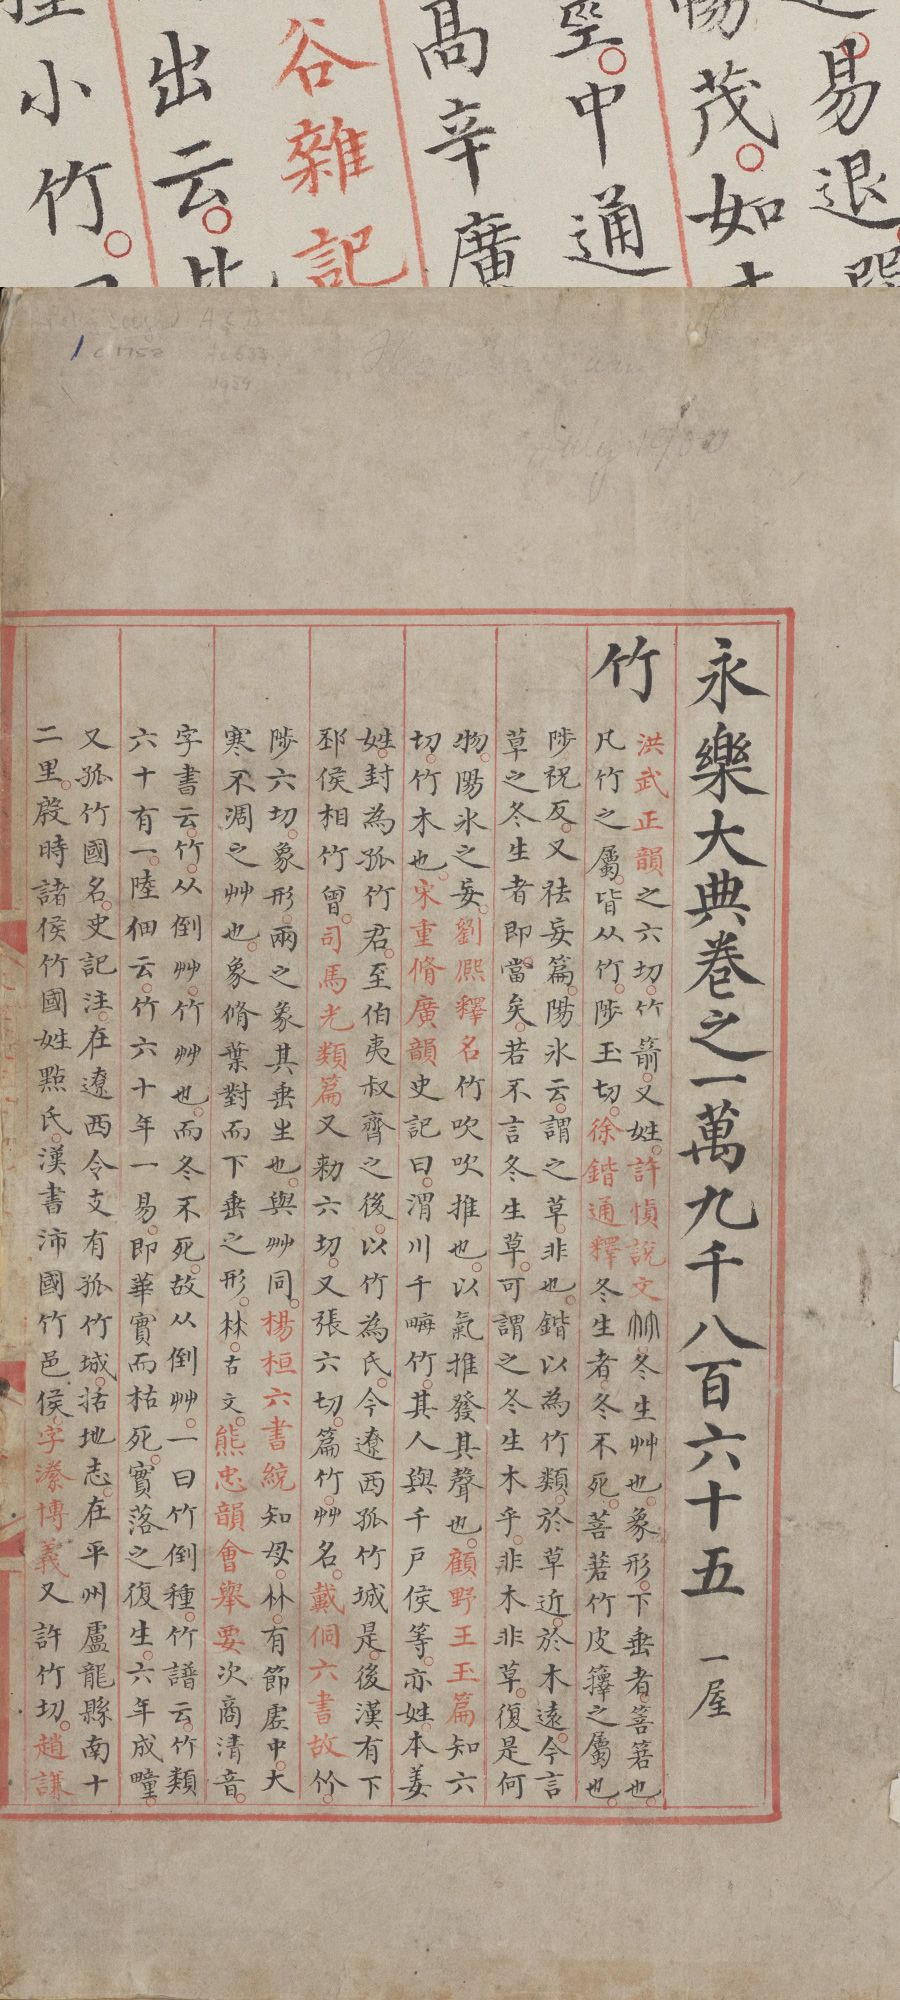 易退
茂。如
中通
高辛廣
谷雜記
出云。
小竹。
永樂大典卷之一萬九千八百六十五 一屋
竹
洪武正韻之六切。竹箭。又姓。許慎說文冬生艸也。象形。下垂者。箁箬也。
凡竹之屬。皆从竹。陟玉切。徐鍇通釋冬生者。冬不死。菩䒷竹皮籜之屬也。
陟祝反。又袪妄篇。陽氷云。謂之草。非也。鍇以為竹類。於草近。於木遠。今言
草之冬生者即當矣。若不言冬生草。可謂之冬生木乎。非木非草。復是何
物。陽氷之妄。劉熈釋名竹吹吹推也。以氣推發其聲也。顧野王玉篇知六
切。竹木也。宋重脩廣韻史記曰。渭川千畮竹。其人與千戶侯等。亦姓。本姜
姓。封為孤竹君。至伯夷叔齊之後。以竹為氏。今遼西孤竹城是。後漢有下
邳侯相竹曾。司馬光類篇又勑六切。又張六切。篇竹。艸名。戴侗六書故
陟六切。象形。兩之象其垂生也。與艸同。楊桓六書統知母。林。有節虛中。大
寒不凋之艸也。象脩葉對而下垂之形。林。古文。熊忠韻會舉要次商清音。
字書云。竹。从倒艸。竹艸也。而冬不死。故从倒艸。一曰竹倒種。竹譜云。竹類
六十有一。陸佃云。竹六十年一易。即華實而枯死。實落之復生。六年成疃。
又孤竹國名。史記注。在遼西令支有孤竹城。括地志。在平州盧龍縣南十
二里。殷時諸侯竹國姓㸃氏。漢書沛國竹邑侯。字潫博義又許竹切。趙謙